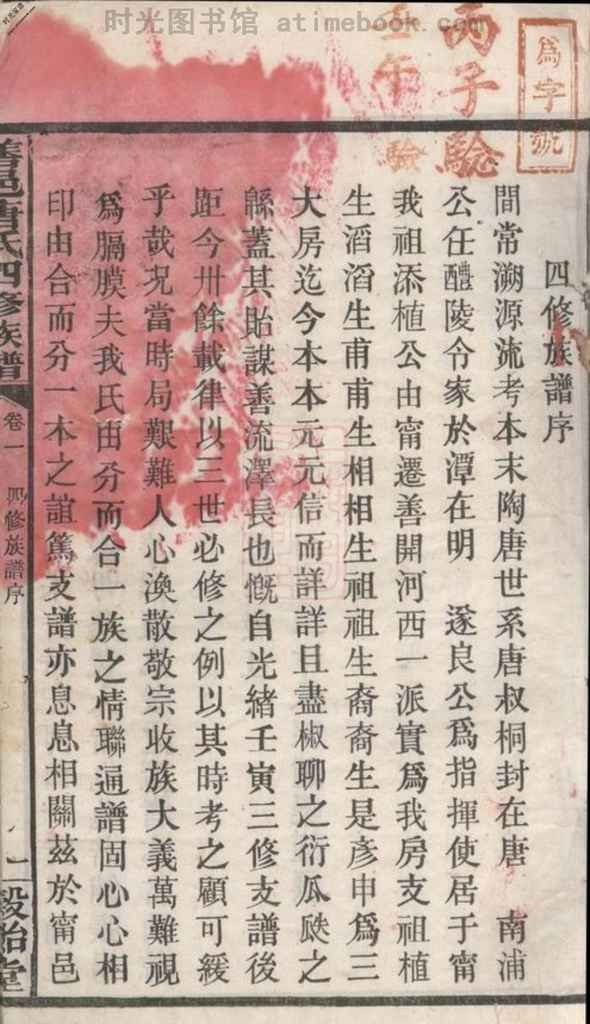 时光图书馆 atimebook.com
為字號
丙子驗
壬午驗
四修族譜序
間常溯源流考本末陶唐世系唐叔桐封在唐 南浦
公任醴陵令家於潭在明 遂良公為指揮使居于甯
我祖添植公由甯遷善開河西一派實為我房支祖植
生滔滔生甫甫生相相生祖祖生裔裔生是彥申為三
大房迄今本本元元信而詳詳且盡椒聊之衍瓜瓞之
緜蓋其貽謀善流澤長也慨自光緒壬寅三修支譜後
距今卅餘載律以三世必修之例以其時考之顧可緩
乎哉况當時局艱難人心渙散敬宗收族大義萬難視
為膈膜夫我氏由分而合一族之情聯通譜固心心相
印由合而分一本之誼篤支譜亦息息相關茲於甯邑
善邑唐氏四修族譜 卷一 四修族譜序 一 毅詒堂